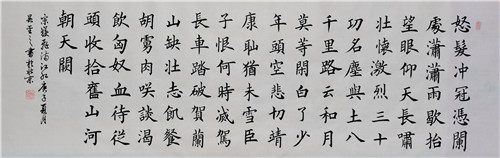 怒髮冲冠憑闌
處瀟瀟雨歇抬
望眼仰天長嘯
壯懷激烈三十
功名塵與土八
千里路云和月
莫等閒白了少
年頭空悲切靖
康耻猶未雪臣
子恨何時滅駕
長車踏破賀蘭
山缺壯志飢餐
胡虜肉笑談渴
飲匈奴血待從
頭收拾舊山河
朝天闕
宋岳飛滿江紅庚子夏月
書於北京